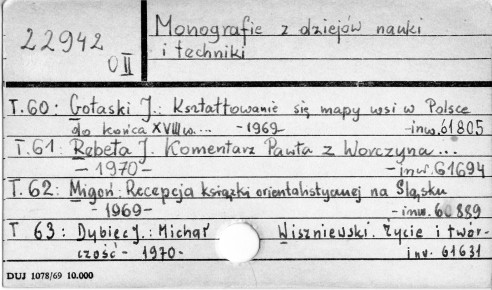 22942
O II
Monografie z dziejów nauki
i techniki
T.60: Gołaski J.: Kształtowanie się mapy wsi w Polsce
do końca XVIII w... - 1969 -inw.61805
T.61: Rebeta J. Komentarz Pawła z Worczyna...
- 1970 - -inw.61694
T.62: Migoń: Recepcja książki orientalistycznej na Śląsku
- 1969 - -inw. 60889
T 63: Dybiec J.: Michał Wiszniewski. Życie i twór-
czość - 1970- inv. 61631
DUJ 1078/69 10.000